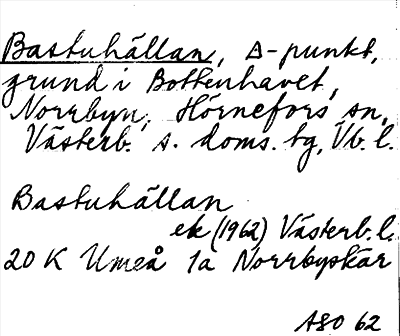 Bastuhällan, Δ-punkt,
grund i Bottenhavet,
Norrbyn, Hörnefors sn,
Västerb. s. doms. tg, Vb. l.
Bastuhällan
ek (1962) Västerb. l.
20 K Umeå 1a Norrbyskär
ASO 62